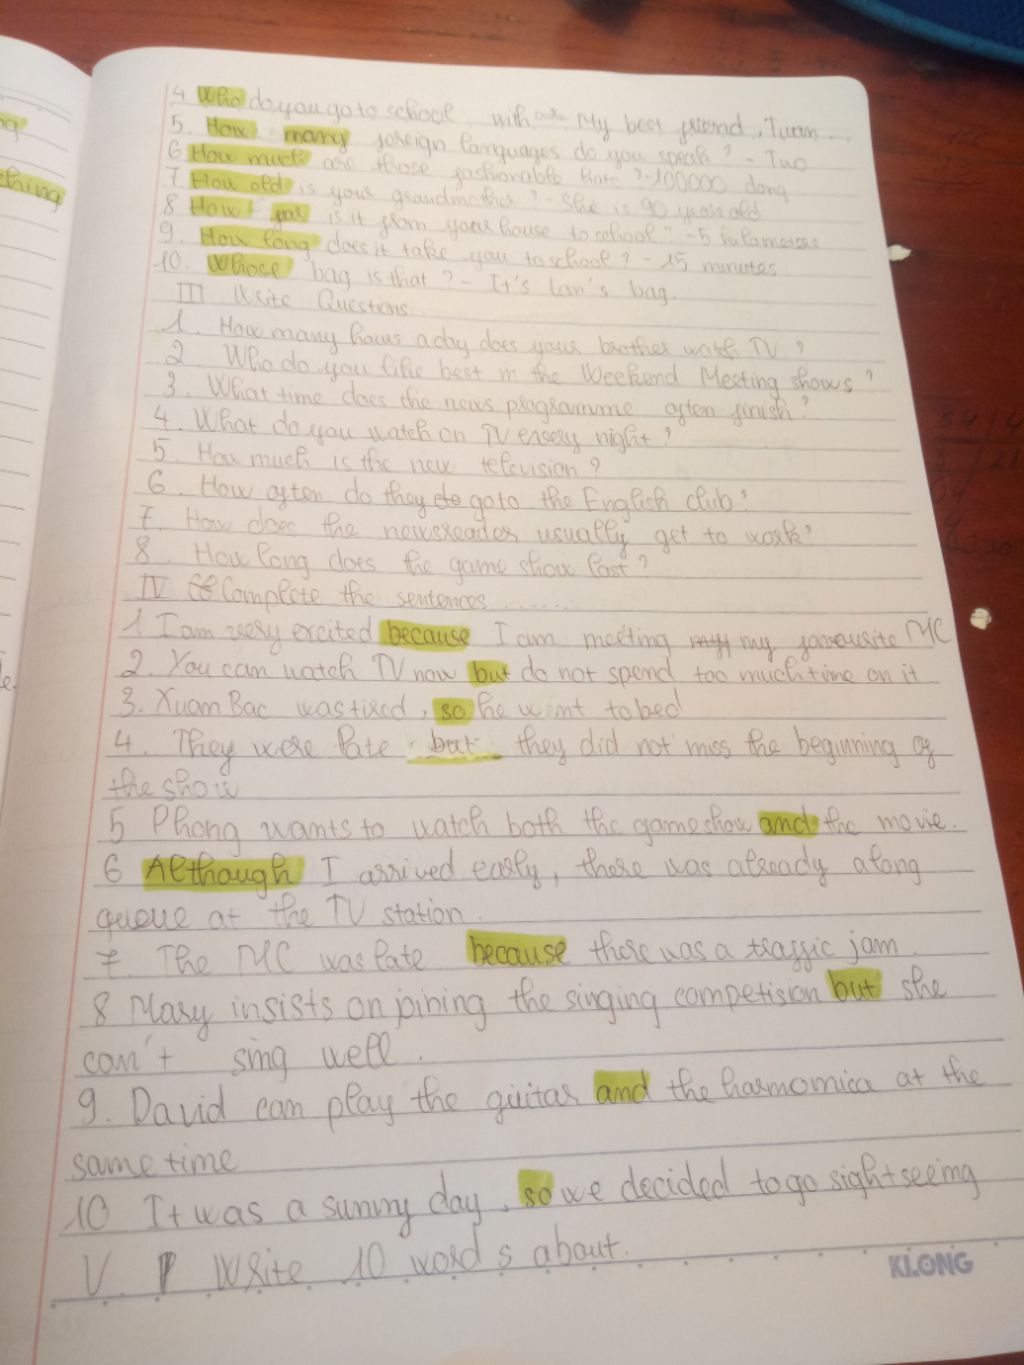 ng
thing
e.
4 Who do you go to school with My best friend, Tuan
5. How many foreign languages do you speak? - Two
6 How much are those fashionable hats? - 100000 dong
7 How old is your grandmother? - She is 90 years old
8 How far is it from your house to school? - 5 kilometers
9. How long does it take you to school? - 15 minutes
10. Whose bag is that? - It's Lan's bag.
III Write Questions
1. How many hours a day does your brother watch TV?
2 Who do you like best in the Weekend Meeting shows?
3. What time does the news programme often finish?
4. What do you watch on TV every night?
5. How much is the new television?
6. How often do they go to the English club?
7. How does the newsreader usually get to work?
8. How long does the game show last?
IV Complete the sentences ......
1 I am very excited because I am meeting my favourite MC
2. You can watch TV now but do not spend too much time on it
3. Xuam Bac was tired, so he went to bed
4. They were late but they did not miss the beginning of
the show
5 Phong wants to watch both the game show and the movie.
6 Although I arrived early, there was already a long
queue at the TV station.
7. The MC was late because there was a traffic jam
8 Mary insists on joining the singing competision but she
can't sing well.
9. David can play the guitar and the harmomica at the
same time
10 It was a sunny day, so we decided to go sightseeing
V. Write 10 words about.
KLONG